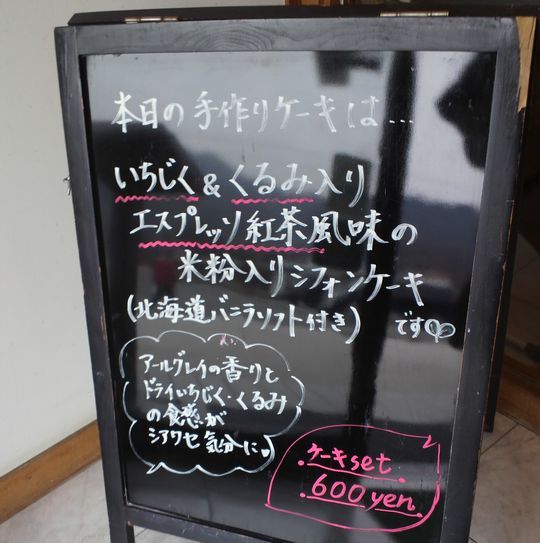 本日の手作りケーキは…
いちじく&くるみ入り
エスプレッソ紅茶風味の
米粉入りシフォンケーキ
(北海道バニラソフト付き)
です♡
アールグレイの香りと
ドライいちじく・くるみ
の食感が
シアワセ気分に♥
ケーキset
600yen